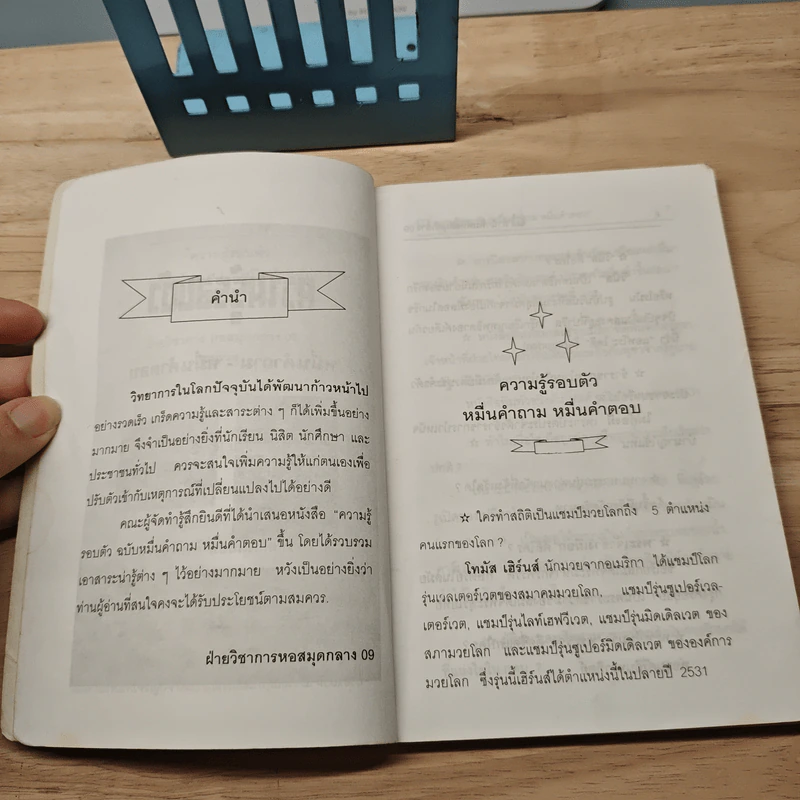 คำนำ
วิทยาการในโลกปัจจุบันได้พัฒนาก้าวหน้าไป
อย่างรวดเร็ว เกร็ดความรู้และสาระต่าง ๆ ก็ได้เพิ่มขึ้นอย่าง
มากมาย จึงจำเป็นอย่างยิ่งที่นักเรียน นิสิต นักศึกษา และ
ประชาชนทั่วไป ควรจะสนใจเพิ่มความรู้ให้แก่ตนเองเพื่อ
ปรับตัวเข้ากับเหตุการณ์ที่เปลี่ยนแปลงไปได้อย่างดี
คณะผู้จัดทำรู้สึกยินดีที่ได้นำเสนอหนังสือ "ความรู้
รอบตัว ฉบับหมื่นคำถาม หมื่นคำตอบ" ขึ้น โดยได้รวบรวม
เอาสาระน่ารู้ต่าง ๆ ไว้อย่างมากมาย หวังเป็นอย่างยิ่งว่า
ท่านผู้อ่านที่สนใจคงจะได้รับประโยชน์ตามสมควร.
ฝ่ายวิชาการหอสมุดกลาง 09
ความรู้รอบตัว
หมื่นคำถาม หมื่นคำตอบ
☆ ใครทำสถิติเป็นแชมป์มวยโลกถึง 5 ตำแหน่ง
คนแรกของโลก ?
โทมัส เฮิร์นส์ นักมวยจากอเมริกา ได้แชมป์โลก
รุ่นเวลเตอร์เวตของสมาคมมวยโลก, แชมป์รุ่นซูเปอร์เวล-
เตอร์เวต, แชมป์รุ่นไลท์เฮฟวีเวต, แชมป์รุ่นมิดเดิลเวต ของ
สภามวยโลก และแชมป์รุ่นซูเปอร์มิดเดิลเวต ขององค์การ
มวยโลก ซึ่งรุ่นนี้เฮิร์นส์ได้ตำแหน่งนี้ในปลายปี 2531